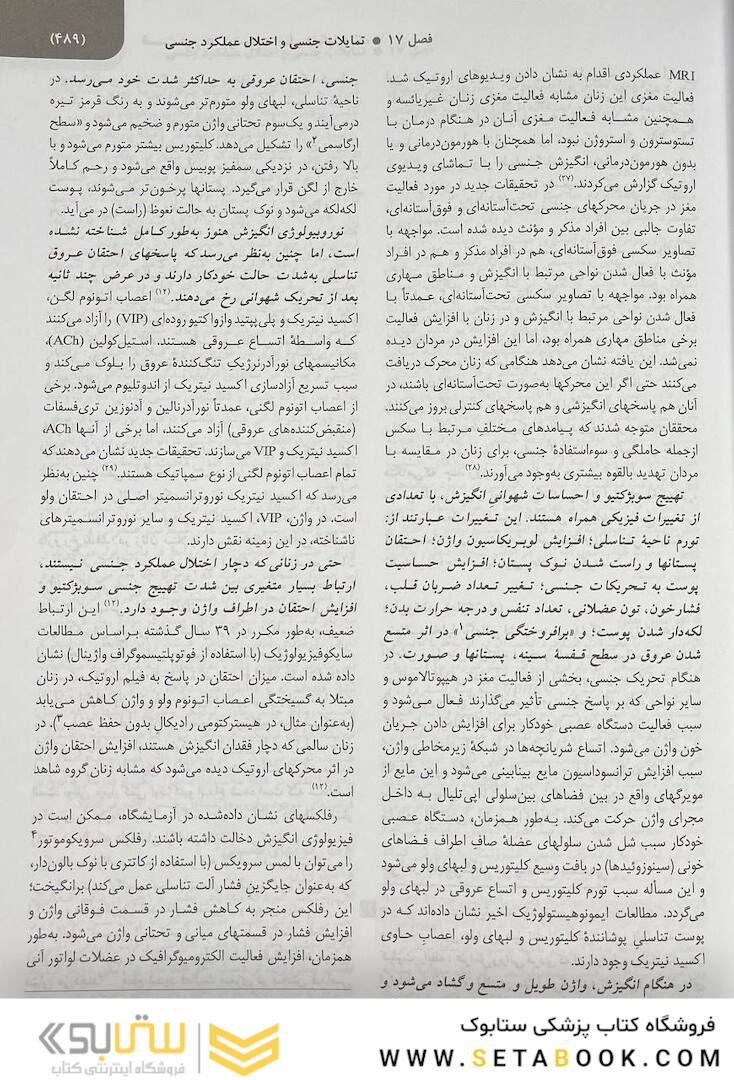 فصل ۱۷ ● تمایلات جنسی و اختلال عملکرد جنسی
(۴۸۹)
MRI عملکردی اقدام به نشان دادن ویدیوهای اروتیک شد.
فعالیت مغزی این زنان مشابه فعالیت مغزی زنان غیریائسه و
همچنین مشابه فعالیت مغزی آنان در هنگام درمان با
تستوسترون و استروژن نبود، اما همچنان با هورمون‌درمانی و یا
بدون هورمون‌درمانی، انگیزش جنسی را با تماشای ویدیوی
اروتیک گزارش می‌کردند.(۲۷) در تحقیقات جدید در مورد فعالیت
مغز در جریان محرکهای جنسی تحت‌آستانه‌ای و فوق‌آستانه‌ای،
تفاوت جالبی بین افراد مذکر و مؤنث دیده شده است. مواجهه با
تصاویر سکسی فوق‌آستانه‌ای، هم در افراد مذکر و هم در افراد
مؤنث با فعال شدن نواحی مرتبط با انگیزش و مناطق مهاری
همراه بود. مواجهه با تصاویر سکسی تحت‌آستانه‌ای، عمدتاً با
فعال شدن نواحی مرتبط با انگیزش و در زنان با افزایش فعالیت
برخی مناطق مهاری همراه بود، اما این افزایش در مردان دیده
نمی‌شد. این یافته نشان می‌دهد هنگامی که زنان محرک دریافت
می‌کنند حتی اگر این محرکها به‌صورت تحت‌آستانه‌ای باشند، در
آنان هم پاسخهای انگیزشی و هم پاسخهای کنترلی بروز می‌کنند.
محققان متوجه شدند که پیامدهای مختلفِ مرتبط با سکس
ازجمله حاملگی و سوءاستفادهٔ جنسی، برای زنان در مقایسه با
مردان تهدید بالقوه بیشتری به‌وجود می‌آورند.(۲۸)
تهییج سوبژکتیو و احساسات شهوانی انگیزش، با تعدادی
از تغییرات فیزیکی همراه هستند. این تغییرات عبارتند از:
تورم ناحیهٔ تناسلی؛ افزایش لوبریکاسیون واژن؛ احتقان
پستانها و راست شدن نوک پستان؛ افزایش حساسیت
پوست به تحریکات جنسی؛ تغییر تعداد ضربان قلب،
فشارخون، تون عضلانی، تعداد تنفس و درجه حرارت بدن؛
لکه‌دار شدن پوست؛ و «برافروختگی جنسی۱» در اثر متسع
شدن عروق در سطح قفسهٔ سینه، پستانها و صورت. در
هنگام تحریک جنسی، بخشی از فعالیت مغز در هیپوتالاموس و
سایر نواحی که بر پاسخ جنسی تأثیر می‌گذارند فعال می‌شود و
سبب فعالیت دستگاه عصبی خودکار برای افزایش دادن جریان
خون واژن می‌شود. اتساع شریانچه‌ها در شبکهٔ زیرمخاطی واژن،
سبب افزایش ترانسوداسیون مایع بینابینی می‌شود و این مایع از
مویرگهای واقع در بین فضاهای بین‌سلولی اپی‌تلیال به داخل
مجرای واژن حرکت می‌کند. به‌طور همزمان، دستگاه عصبی
خودکار سبب شل شدن سلولهای عضلهٔ صافِ اطراف فضاهای
خونی (سینوزوئیدها) در بافت وسیع کلیتوریس و لبهای ولو می‌شود
و این مسأله سبب تورم کلیتوریس و اتساع عروقی در لبهای ولو
می‌گردد. مطالعات ایمونوهیستولوژیک اخیر نشان داده‌اند که در
پوست تناسلیِ پوشانندهٔ کلیتوریس و لبهای ولو، اعصابِ حاوی
اکسید نیتریک وجود دارند.
در هنگام انگیزش، واژن طویل و متسع و گشاد می‌شود و
جنسی، احتقان عروقی به حداکثر شدت خود می‌رسد. در
ناحیهٔ تناسلی، لبهای ولو متورم‌تر می‌شوند و به رنگ قرمز تیره
درمی‌آیند و یک‌سوم تحتانی واژن متورم و ضخیم می‌شود و «سطح
ارگاسمی۲» را تشکیل می‌دهد. کلیتوریس بیشتر متورم می‌شود و با
بالا رفتن، در نزدیکی سمفیز پوبیس واقع می‌شود و رحم کاملاً
خارج از لگن قرار می‌گیرد. پستانها پرخون‌تر می‌شوند، پوست
لکه‌لکه می‌شود و نوک پستان به حالت نعوظ (راست) در می‌آید.
نوروبیولوژی انگیزش هنوز به‌طور کامل شناخته نشده
است، اما چنین به‌نظر می‌رسد که پاسخهای احتقان عروق
تناسلی به‌شدت حالت خودکار دارند و در عرض چند ثانیه
بعد از تحریک شهوانی رخ می‌دهند.(۱۲) اعصاب اتونوم لگن،
اکسید نیتریک و پلی‌پپتید وازواکتیو روده‌ای (VIP) را آزاد می‌کنند
که واسطهٔ اتساع عروقی هستند. استیل‌کولین (ACh)،
مکانیسمهای نورآدرنرژیکِ تنگ‌کنندهٔ عروق را بلوک می‌کند و
سبب تسریع آزادسازی اکسید نیتریک از اندوتلیوم می‌شود. برخی
از اعصاب اتونوم لگنی، عمدتاً نورآدرنالین و آدنوزین تری‌فسفات
(منقبض‌کننده‌های عروقی) آزاد می‌کنند، اما برخی از آنها ACh،
اکسید نیتریک و VIP می‌سازند. تحقیقات جدید نشان می‌دهند که
تمام اعصاب اتونوم لگنی از نوع سمپاتیک هستند.(۲۹) چنین به‌نظر
می‌رسد که اکسید نیتریک نوروترانسمیتر اصلی در احتقان ولو
است. در واژن، VIP، اکسید نیتریک و سایر نوروترانسمیترهای
ناشناخته، در این زمینه نقش دارند.
حتی در زنانی که دچار اختلال عملکرد جنسی نیستند،
ارتباط بسیار متغیری بین شدت تهییج جنسی سوبژکتیو و
افزایش احتقان در اطراف واژن وجود دارد.(۱۲) این ارتباط
ضعیف، به‌طور مکرر در ۳۹ سال گذشته براساس مطالعات
سایکوفیزیولوژیک (با استفاده از فوتوپلتیسموگراف واژینال) نشان
داده شده است. میزان احتقان در پاسخ به فیلم اروتیک، در زنان
مبتلا به گسیختگی اعصاب اتونوم ولو و واژن کاهش می‌یابد
(به‌عنوان مثال، در هیسترکتومی رادیکالِ بدون حفظ عصب۳). در
زنان سالمی که دچار فقدان انگیزش هستند، افزایش احتقان واژن
در اثر محرکهای اروتیک دیده می‌شود که مشابه زنان گروه شاهد
است.(۱۲)
رفلکسهای نشان داده‌شده در آزمایشگاه، ممکن است در
فیزیولوژی انگیزش دخالت داشته باشند. رفلکس سرویکوموتور۴
را می‌توان با لمس سرویکس (با استفاده از کاتتری با نوک بالون‌دار،
که به‌عنوان جایگزینِ فشار آلت تناسلی عمل می‌کند) برانگیخت؛
این رفلکس منجر به کاهش فشار در قسمت فوقانی واژن و
افزایش فشار در قسمتهای میانی و تحتانی واژن می‌شود. به‌طور
همزمان، افزایش فعالیت الکترومیوگرافیک در عضلات لواتور آنی
فروشگاه کتاب پزشکی ستابوک
WWW.SETABOOK.COM
ستابوک
فروشگاه اینترنتی کتاب